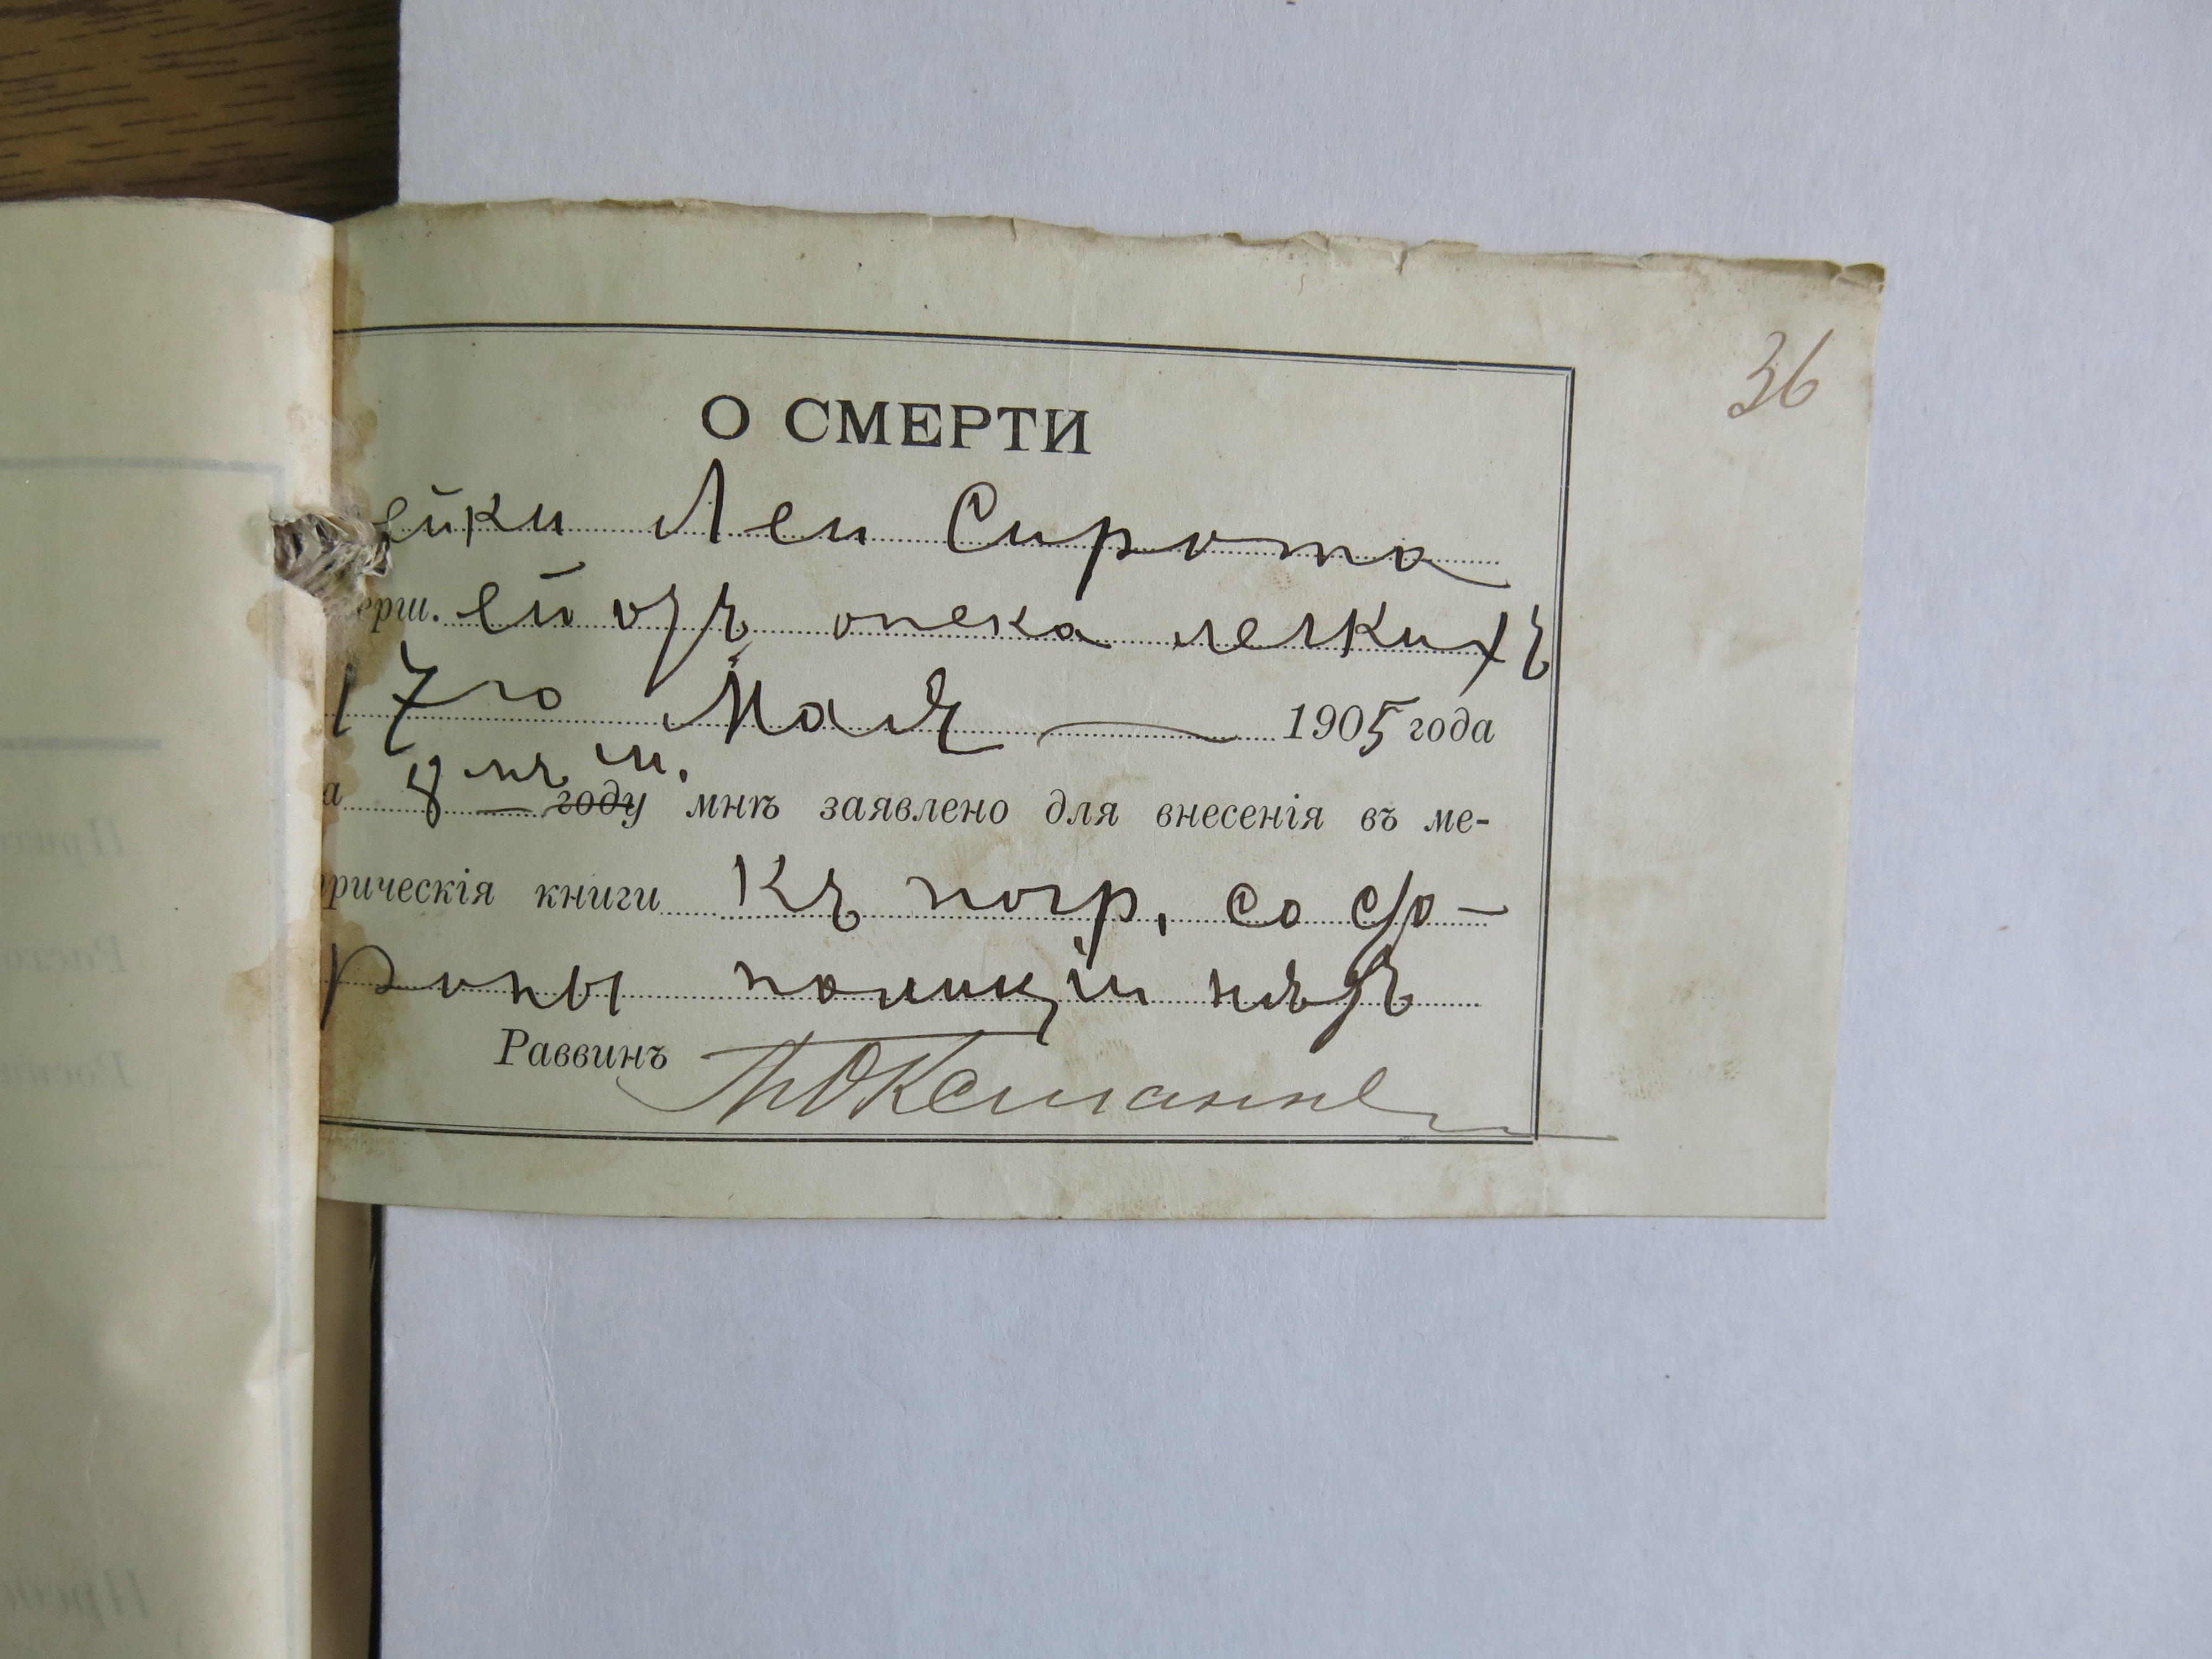 36
О СМЕРТИ
ейки Леи Сирота
ерш. ей отъ отека легкихъ
17го Мая 1905 года
а 8 мъ м. году мнѣ заявлено для внесенія въ ме-
рическія книги Къ погр. со сто-
роны полиціи нѣтъ
Раввинъ